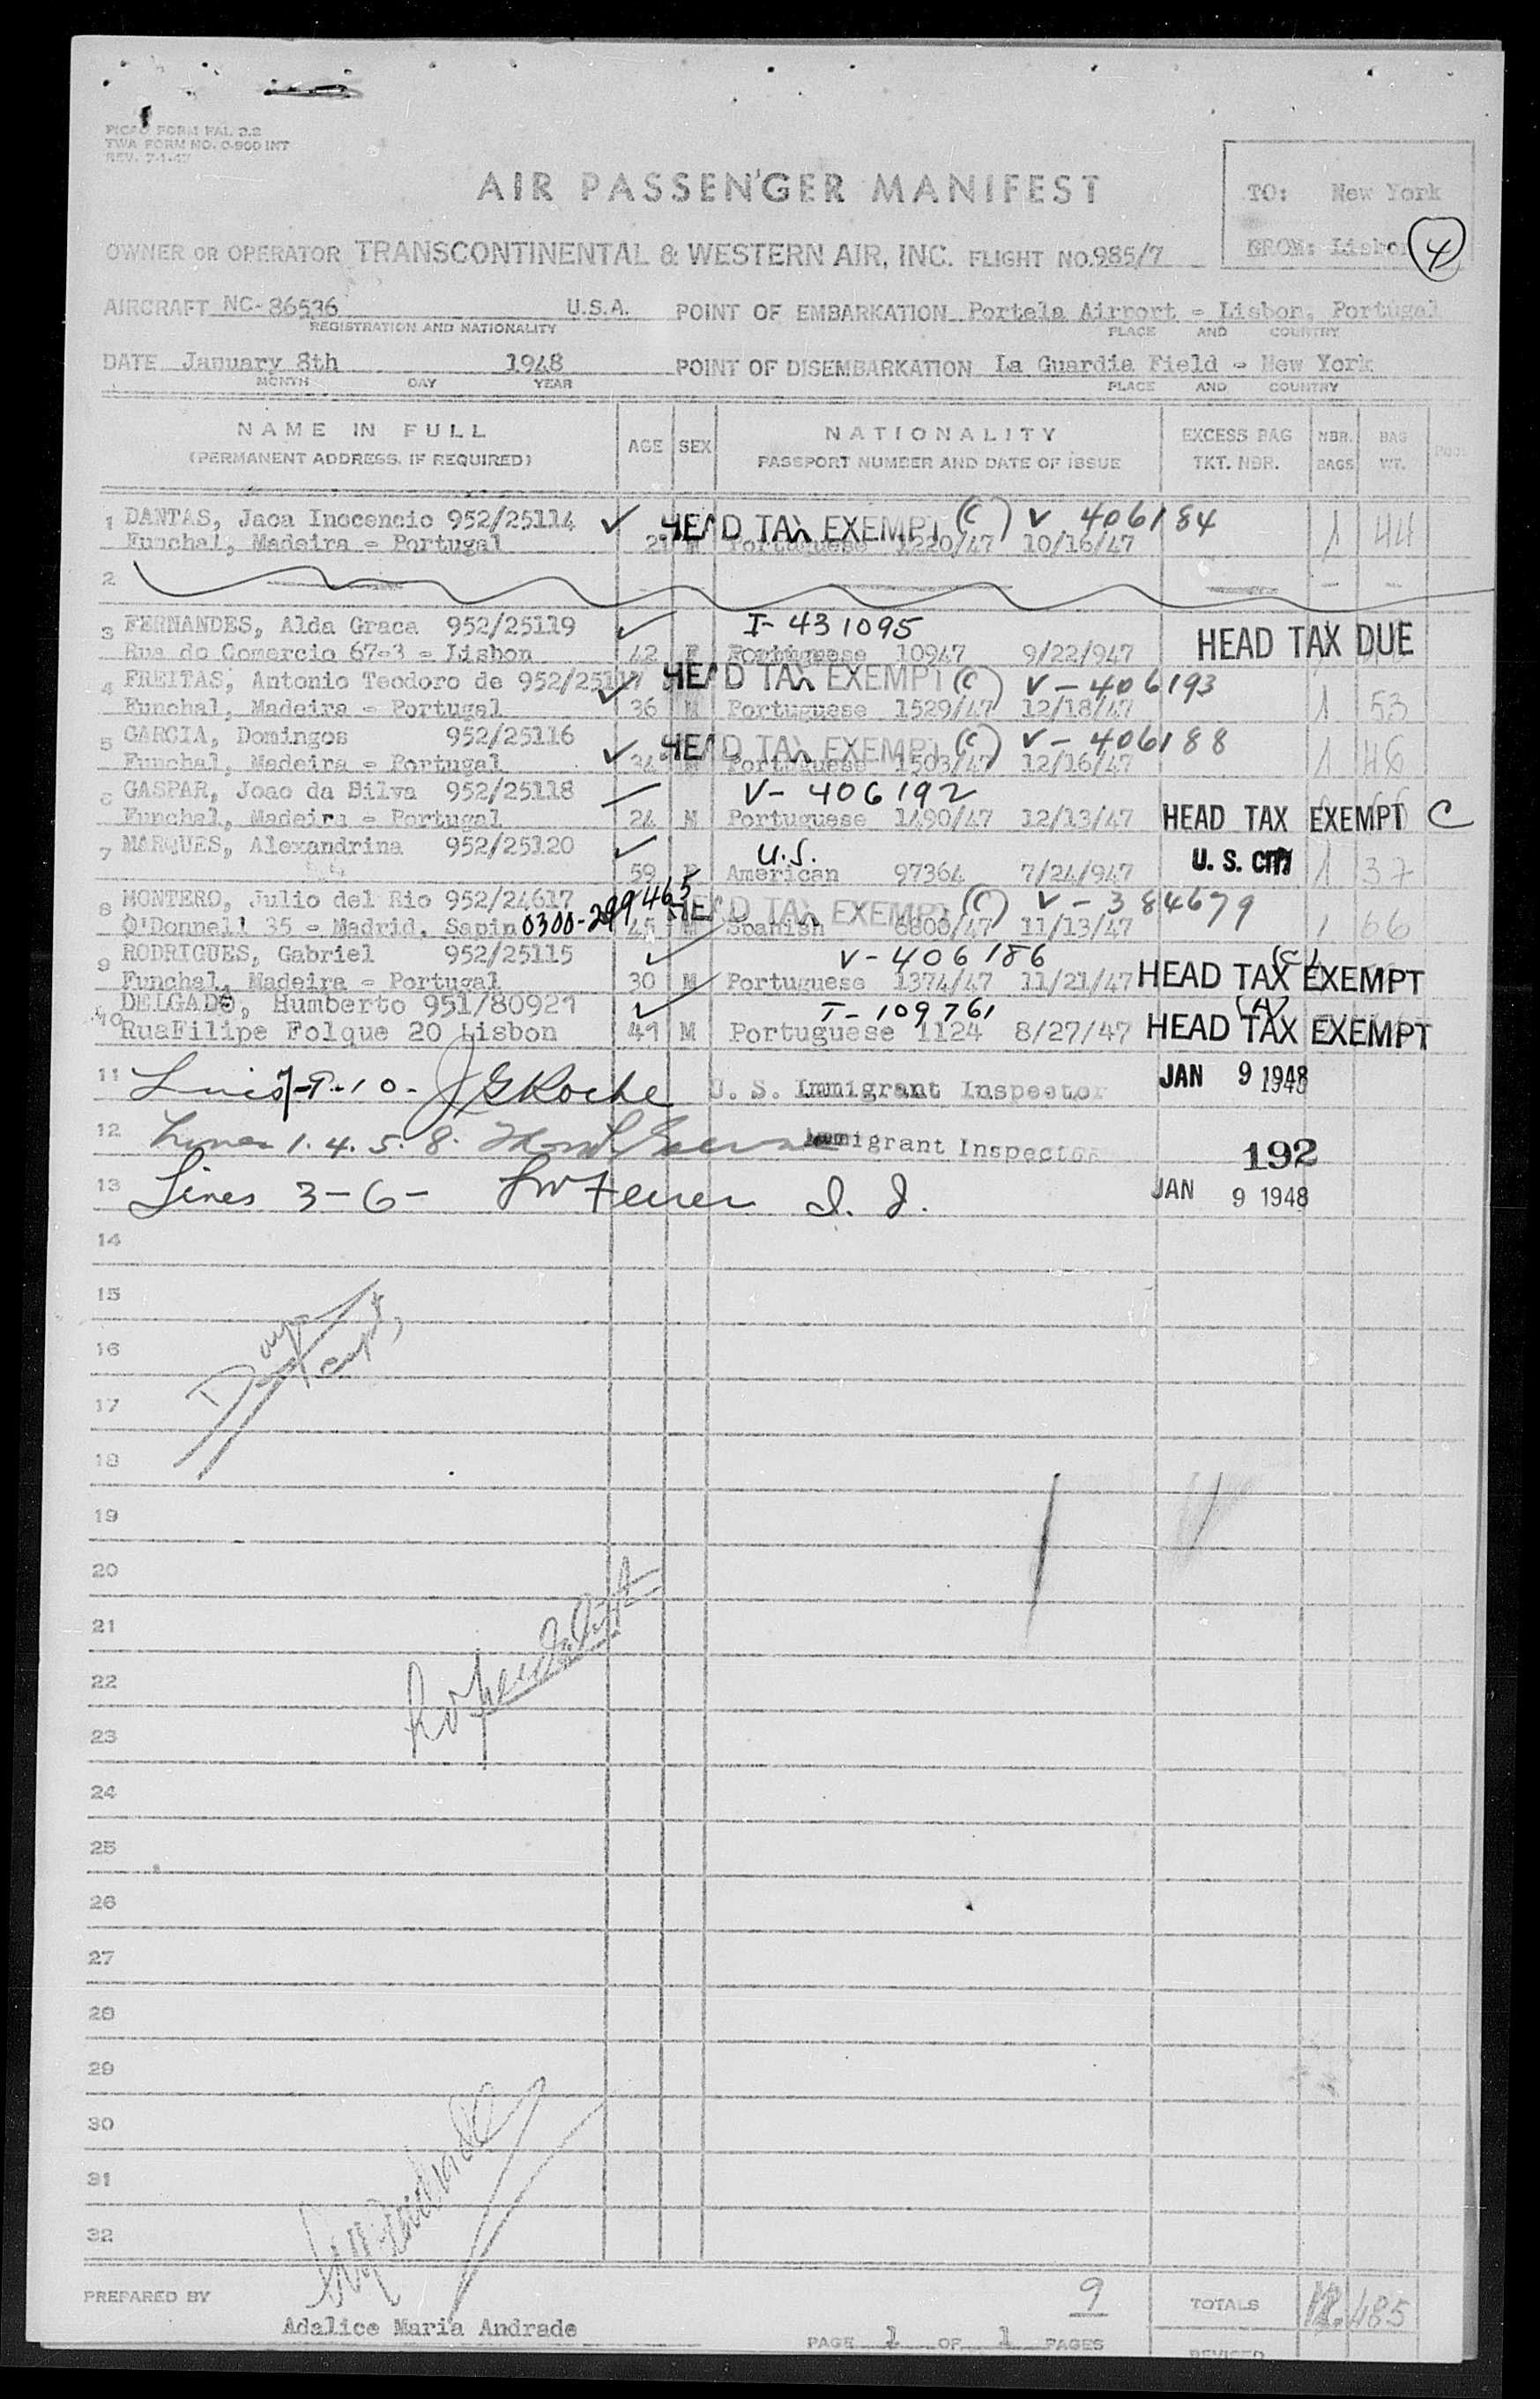 PICAO FORM FAL 2.2
TWA FORM NO. O-900 INT
REV. 7-1-47
AIR PASSENGER MANIFEST
TO: New York
FROM: Lisbon
4
OWNER OR OPERATOR TRANSCONTINENTAL & WESTERN AIR, INC. FLIGHT NO. 985/7
AIRCRAFT NC-86536 U.S.A. POINT OF EMBARKATION Portela Airport - Lisbon, Portugal
REGISTRATION AND NATIONALITY PLACE AND COUNTRY
DATE January 8th 1948 POINT OF DISEMBARKATION La Guardia Field - New York
MONTH DAY YEAR PLACE AND COUNTRY
NAME IN FULL AGE SEX NATIONALITY EXCESS BAG NBR. BAG
(PERMANENT ADDRESS, IF REQUIRED) PASSPORT NUMBER AND DATE OF ISSUE TKT. NBR. BAGS WT.
1 DANTAS, Jaoa Inocencio 952/25114 HEAD TAX EXEMPT (C) V 406184
Funchal, Madeira - Portugal 21 M Portuguese 1220/47 10/16/47 1 44
2
3 FERNANDES, Alda Graca 952/25119 I-431095 HEAD TAX DUE
Rua do Comercio 67-3 - Lisbon 42 F Portuguese 10947 9/22/947
4 FREITAS, Antonio Teodoro de 952/25117 HEAD TAX EXEMPT (C) V-406193
Funchal, Madeira - Portugal 36 M Portuguese 1529/47 12/18/47 1 53
5 GARCIA, Domingos 952/25116 HEAD TAX EXEMPT (C) V-406188
Funchal, Madeira - Portugal 34 M Portuguese 1503/47 12/16/47 1 46
6 GASPAR, Joao da Silva 952/25118 V-406192
Funchal, Madeira - Portugal 24 M Portuguese 1490/47 12/13/47 HEAD TAX EXEMPT C
7 MARQUES, Alexandrina 952/25120 U.S.
59 F American 97364 7/24/947 U. S. CIT. 1 37
8 MONTERO, Julio del Rio 952/24617 HEAD TAX EXEMPT (C) V-384679
O'Donnell 35 - Madrid, Sapin 0300-299465 45 M Spanish 6800/47 11/13/47 1 66
9 RODRIGUES, Gabriel 952/25115 V-406186 (C)
Funchal, Madeira - Portugal 30 M Portuguese 1374/47 11/21/47 HEAD TAX EXEMPT
10 DELGADO, Humberto 951/80921 T-109761 (A)
RuaFilipe Folque 20 Lisbon 41 M Portuguese 1124 8/27/47 HEAD TAX EXEMPT
11 Lines 7-9-10- J G Roche U. S. Immigrant Inspector JAN 9 1948
12 Lines 1. 4. 5. 8. Immigrant Inspector 192
13 Lines 3-6- I. I. JAN 9 1948
14
15
16
17
18
19
20
21
22
23
24
25
26
27
28
29
30
31
32
9
PREPARED BY TOTALS 12 485
Adalice Maria Andrade
PAGE 1 OF 1 PAGES